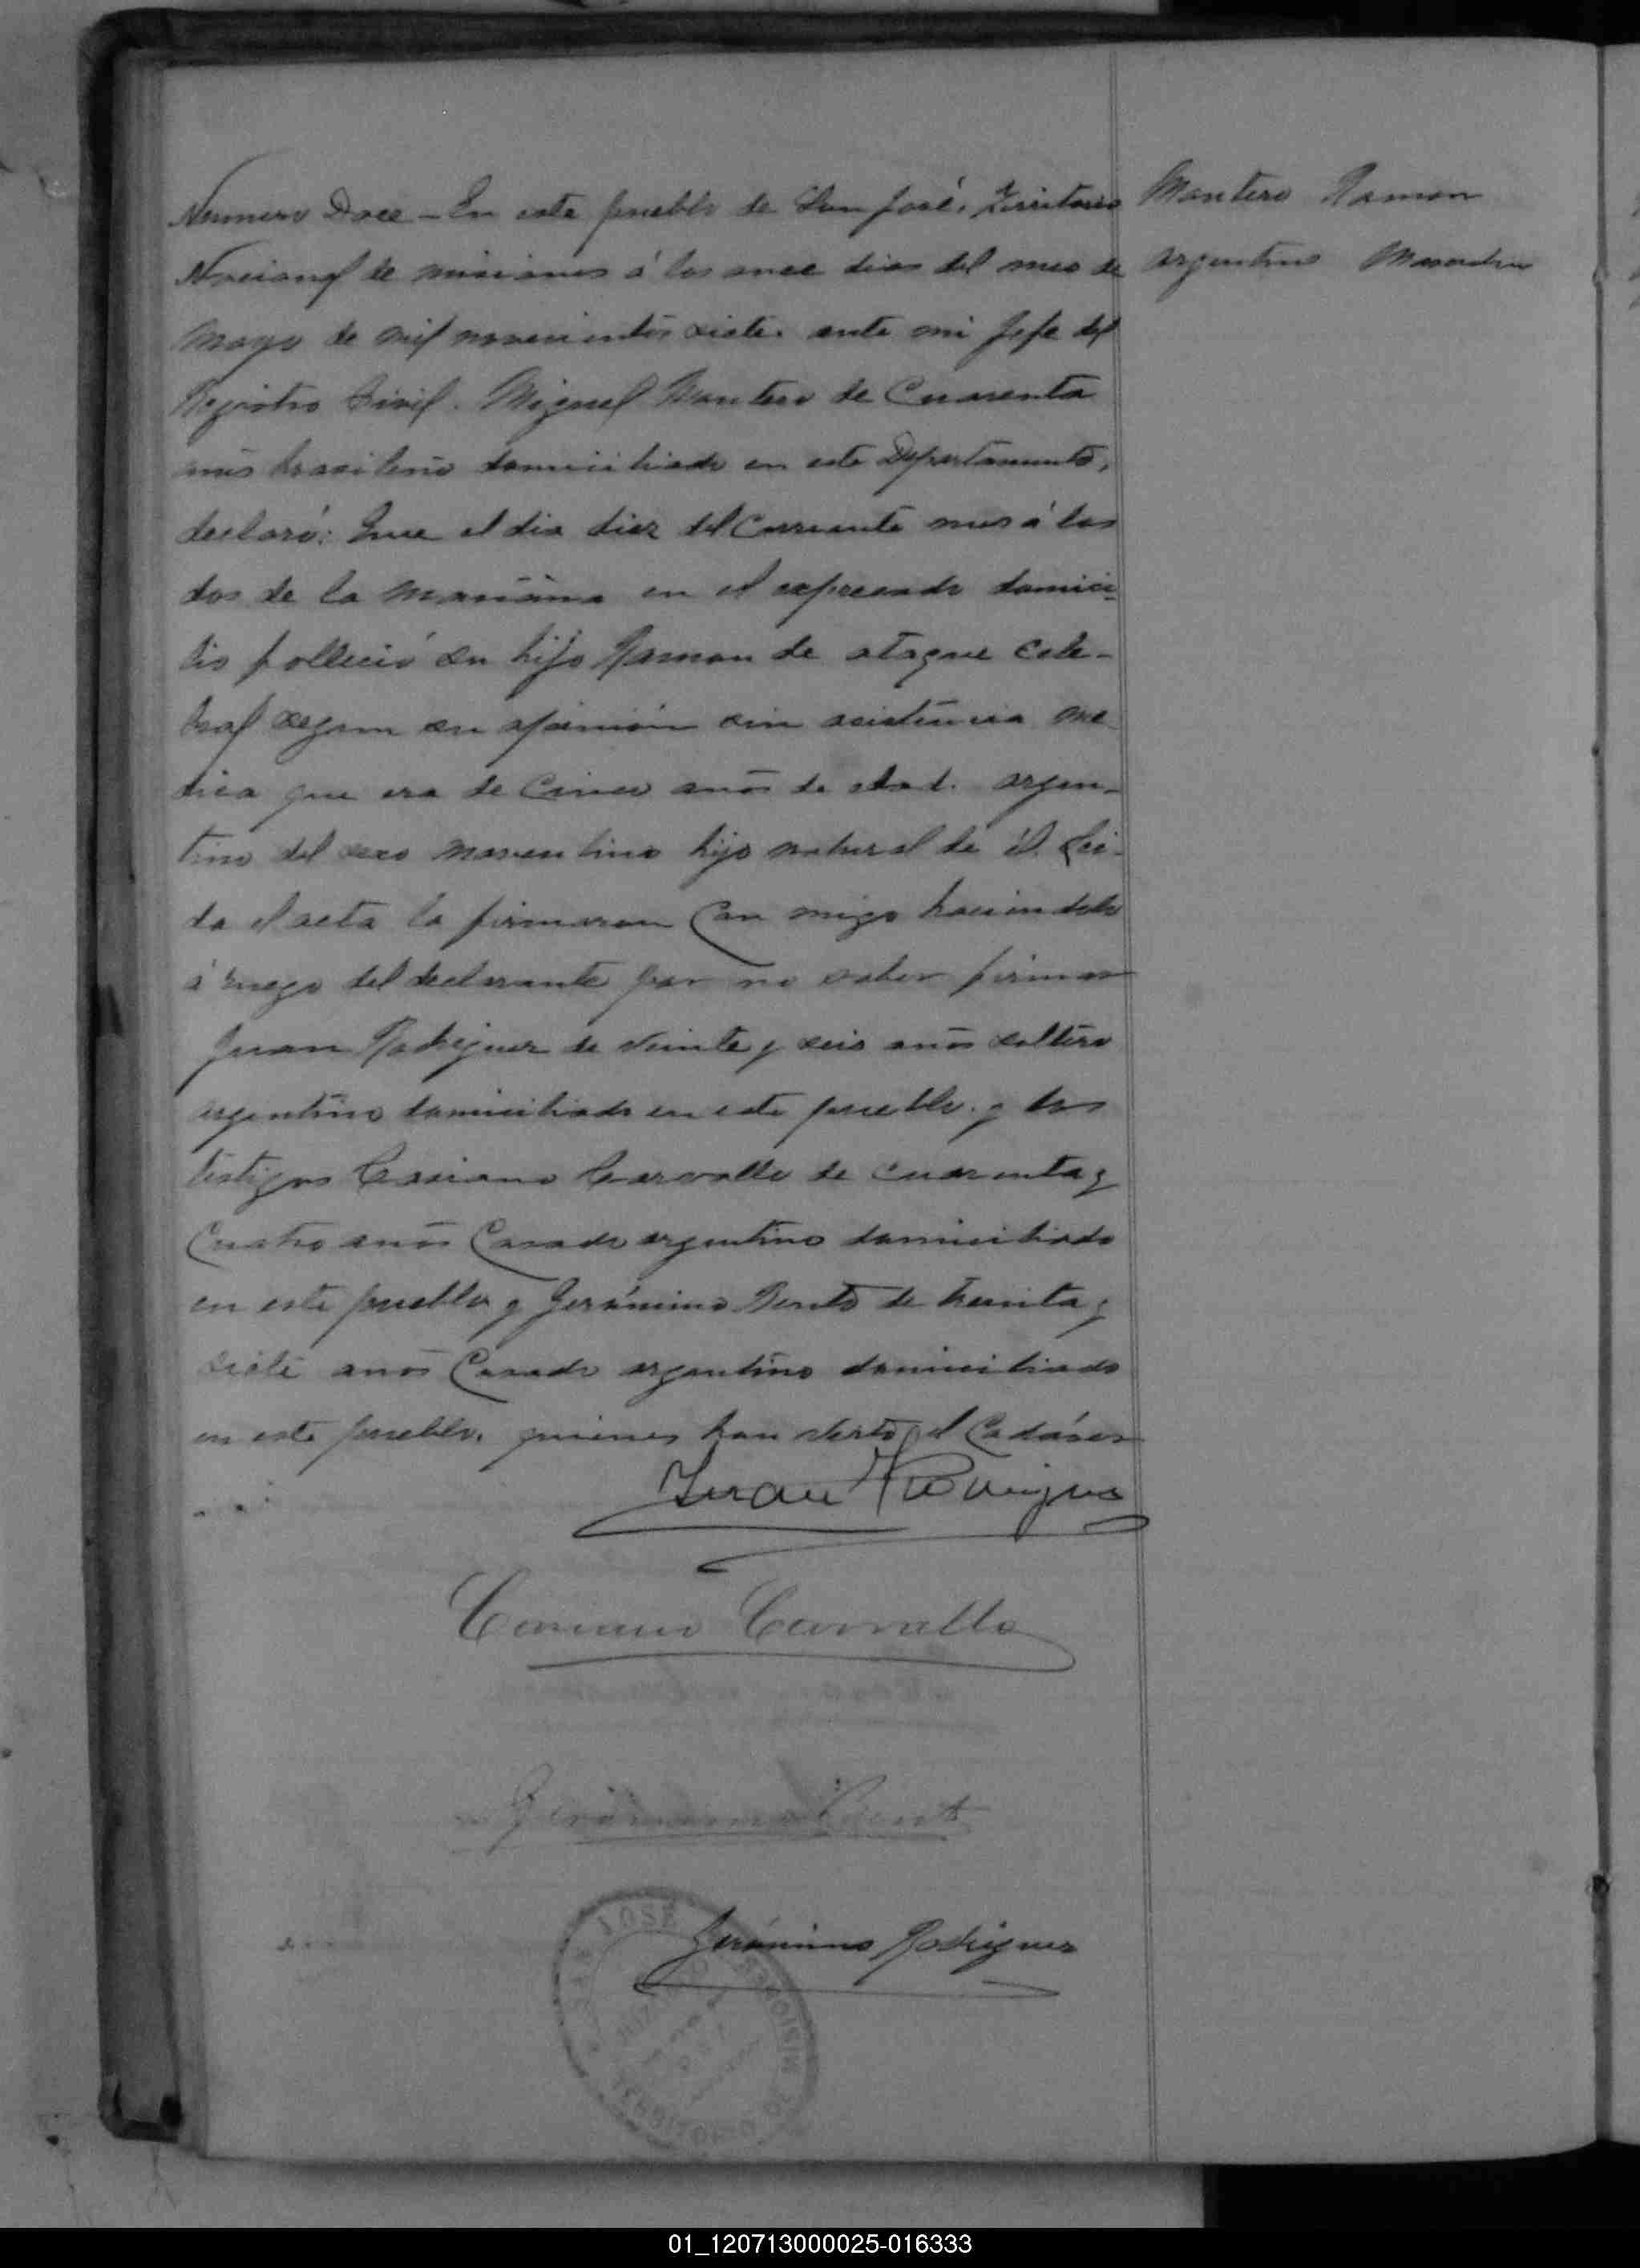 Numero Doce - En este pueblo de San José, Territorio
Nacional de misiones á los once dias del mes de
Mayo de mil novecientos siete. ante mi Jefe del
Registro Civil. Miguel Montero de Cuarenta
años brasileño domiciliado en este Departamento,
declaró: Que el dia diez del Corriente mes á las
dos de la mañana en el expresado domici-
lio fallecio su hijo Ramon de ataque cele-
bral segun su opinión sin asistencia me
dica que era de Cinco años de edad. argen-
tino del sexo masculino hijo natural de él. Lei-
da el acta la firmaron Con migo haciendolo
á ruego del declarante por no saber firmar
Juan Rodriguez de veinte y seis años soltero
argentino domiciliado en este pueblo. y los
testigos Casiano Carvallo de cuarenta y
Cuatro años Casado argentino domiciliado
en este pueblo y Gerónimo Bento de treinta y
siete años Casado argentino domiciliado
en este pueblo. quienes han visto el Cadáver
Juan Rodrigues
Casiano Carvallo
Gerónimo Bento
Gerónimo Rodriguez
Montero Ramon
argentino
SAN JOSÉ
TERRITORIO DE MISIONES
01_120713000025-016333